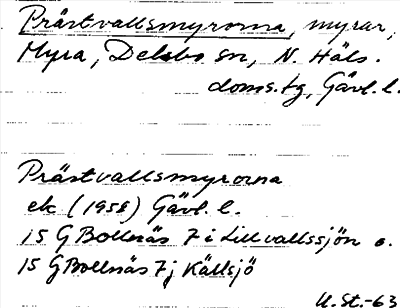 Prästvallsmyrorna, myrar,
Myra, Delsbo sn, N. Häls.
doms.tg, Gävl. l.
Prästvallsmyrorna
ek (1958) Gävl. l.
15 G Bollnäs 7 i Lillvallssjön o.
15 G Bollnäs 7 j Källsjö
U. St.-63